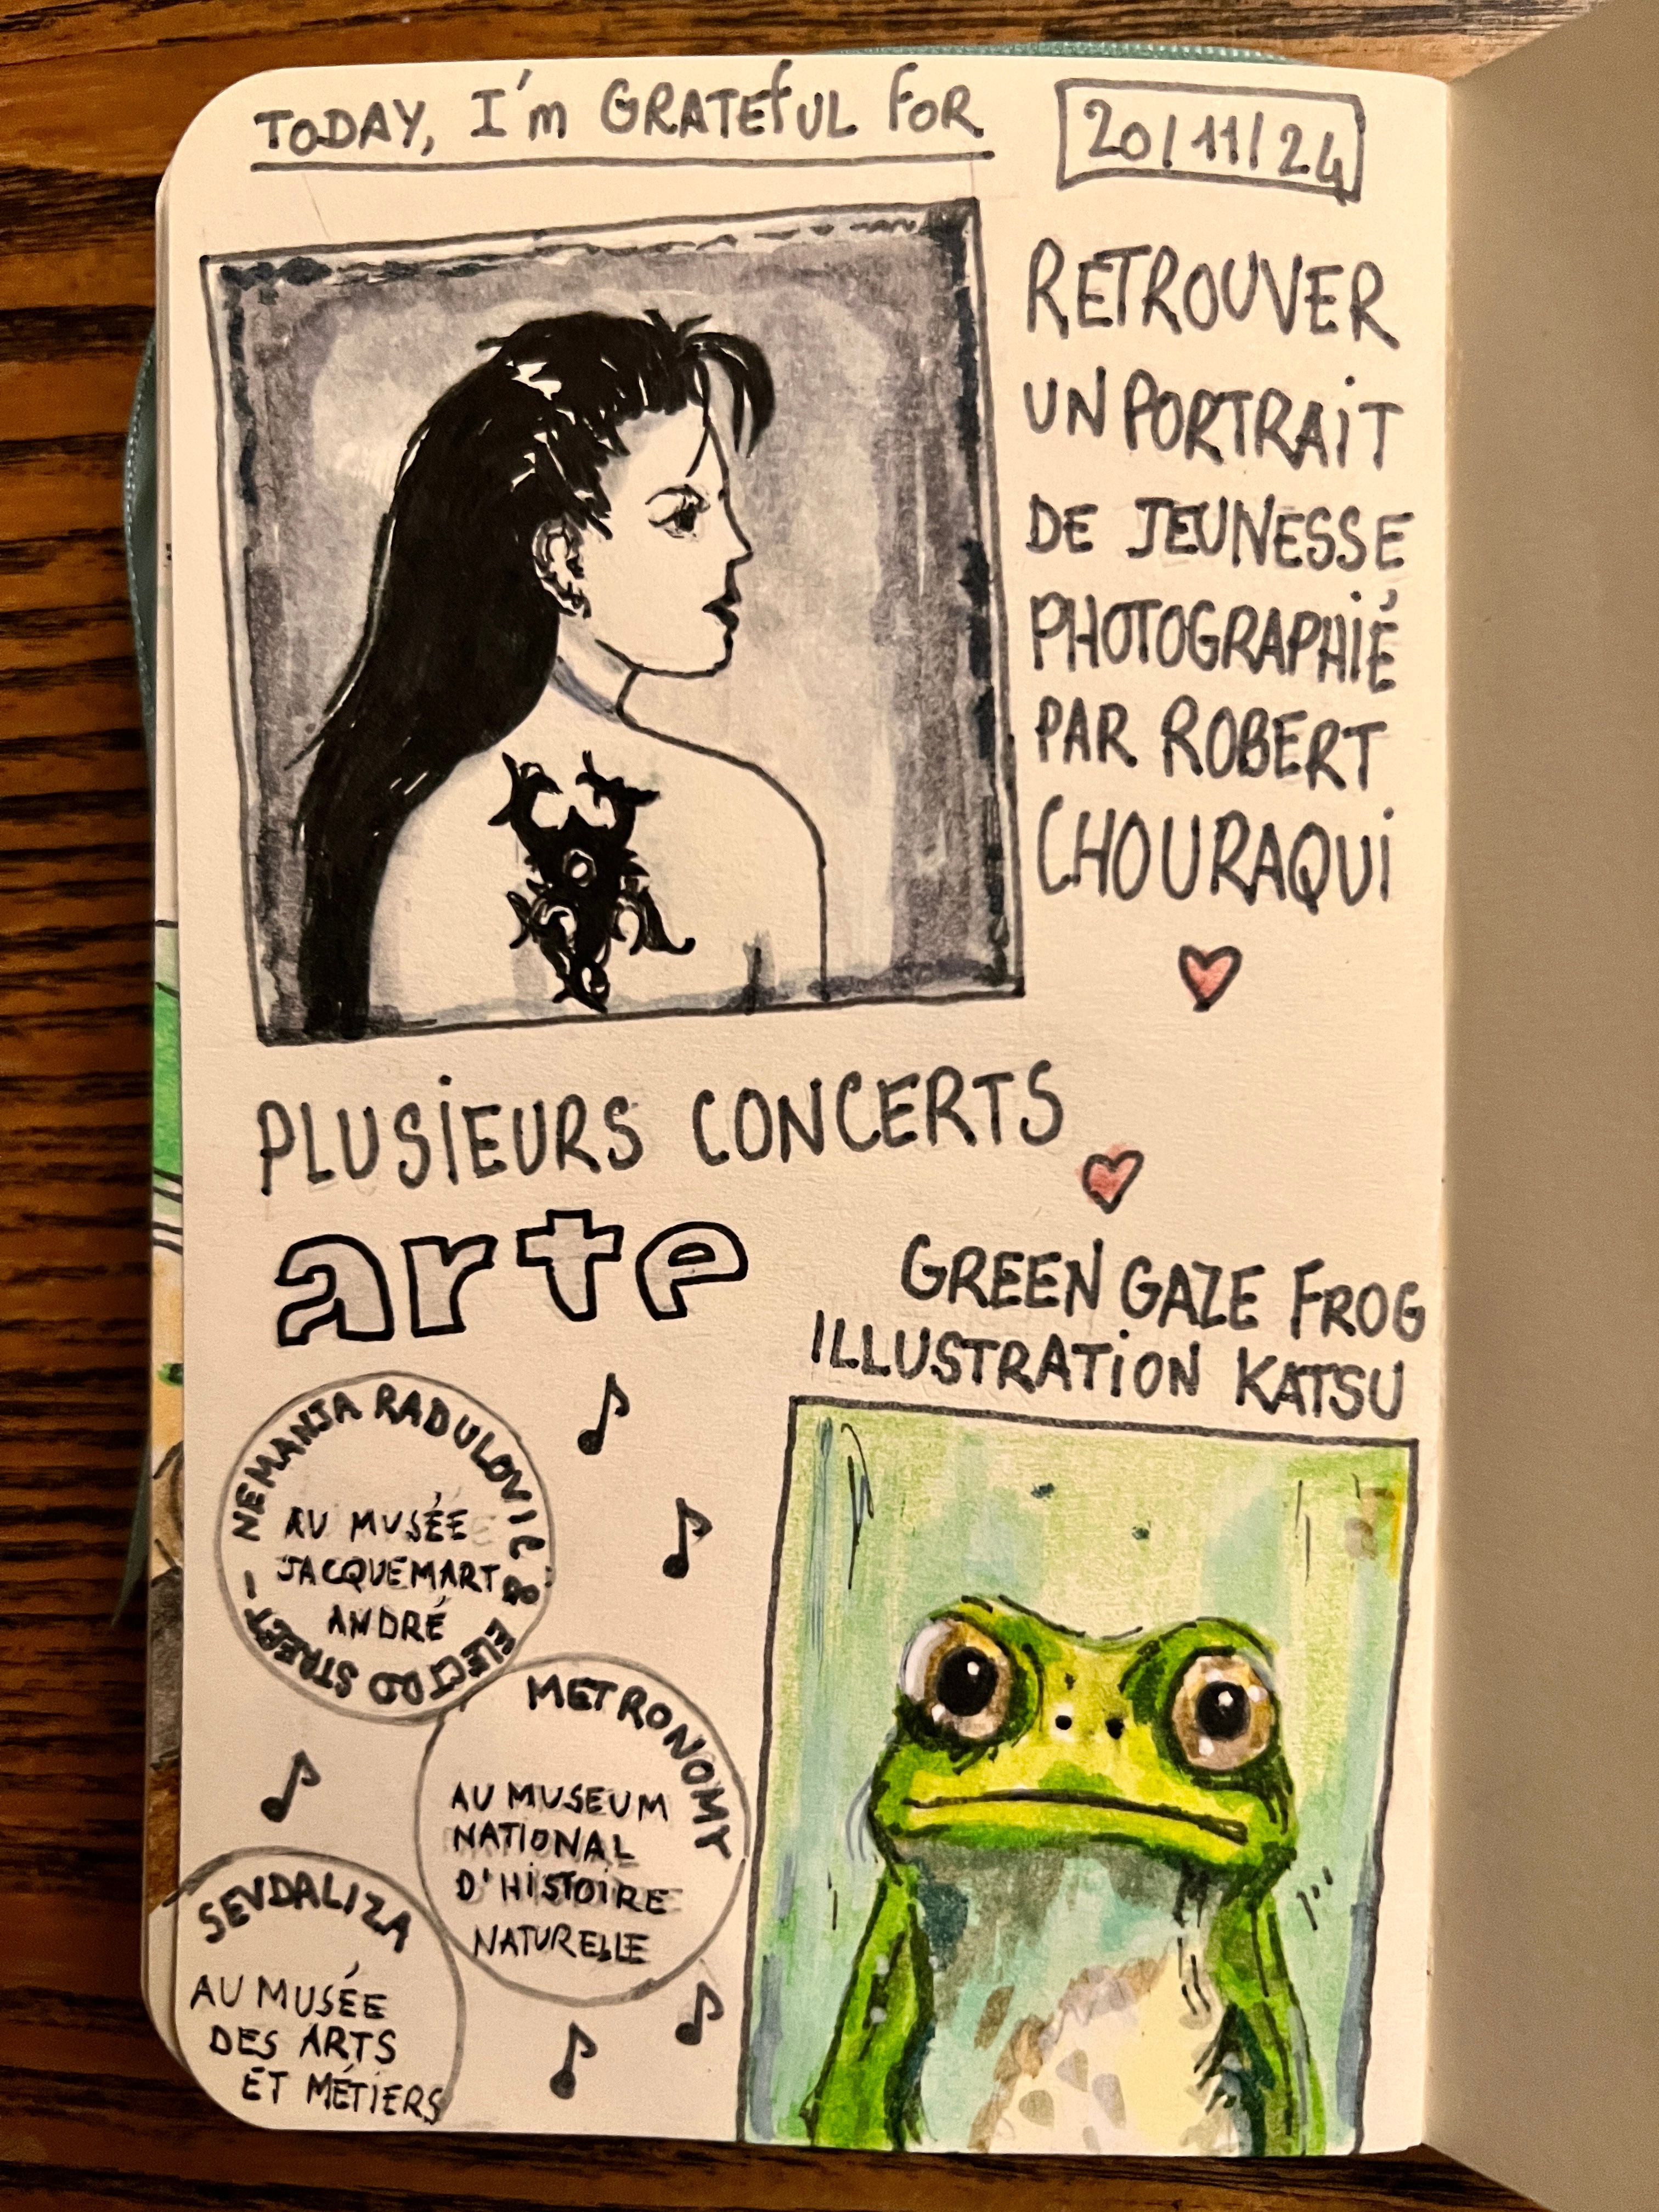 TODAY, I'm GRATEFUL FOR
20/11/24
RETROUVER
UN PORTRAiT
DE JEUNESSE
PHOTOGRAPHIÉ
PAR ROBERT
CHOURAQUi
PLUSiEURS CONCERTS
arte
GREEN GAZE FROG
ILLUSTRATiON KATSU
NEMANJA RADULOVIC & ELECTRO STREET -
AU MUSÉE
JACQUEMART
ANDRÉ
METRONOMY
AU MUSEUM
NATIONAL
D'HiSTOIRE
NATURELLE
SEVDALIZA
AU MUSÉE
DES ARTS
ET MÉTIERS